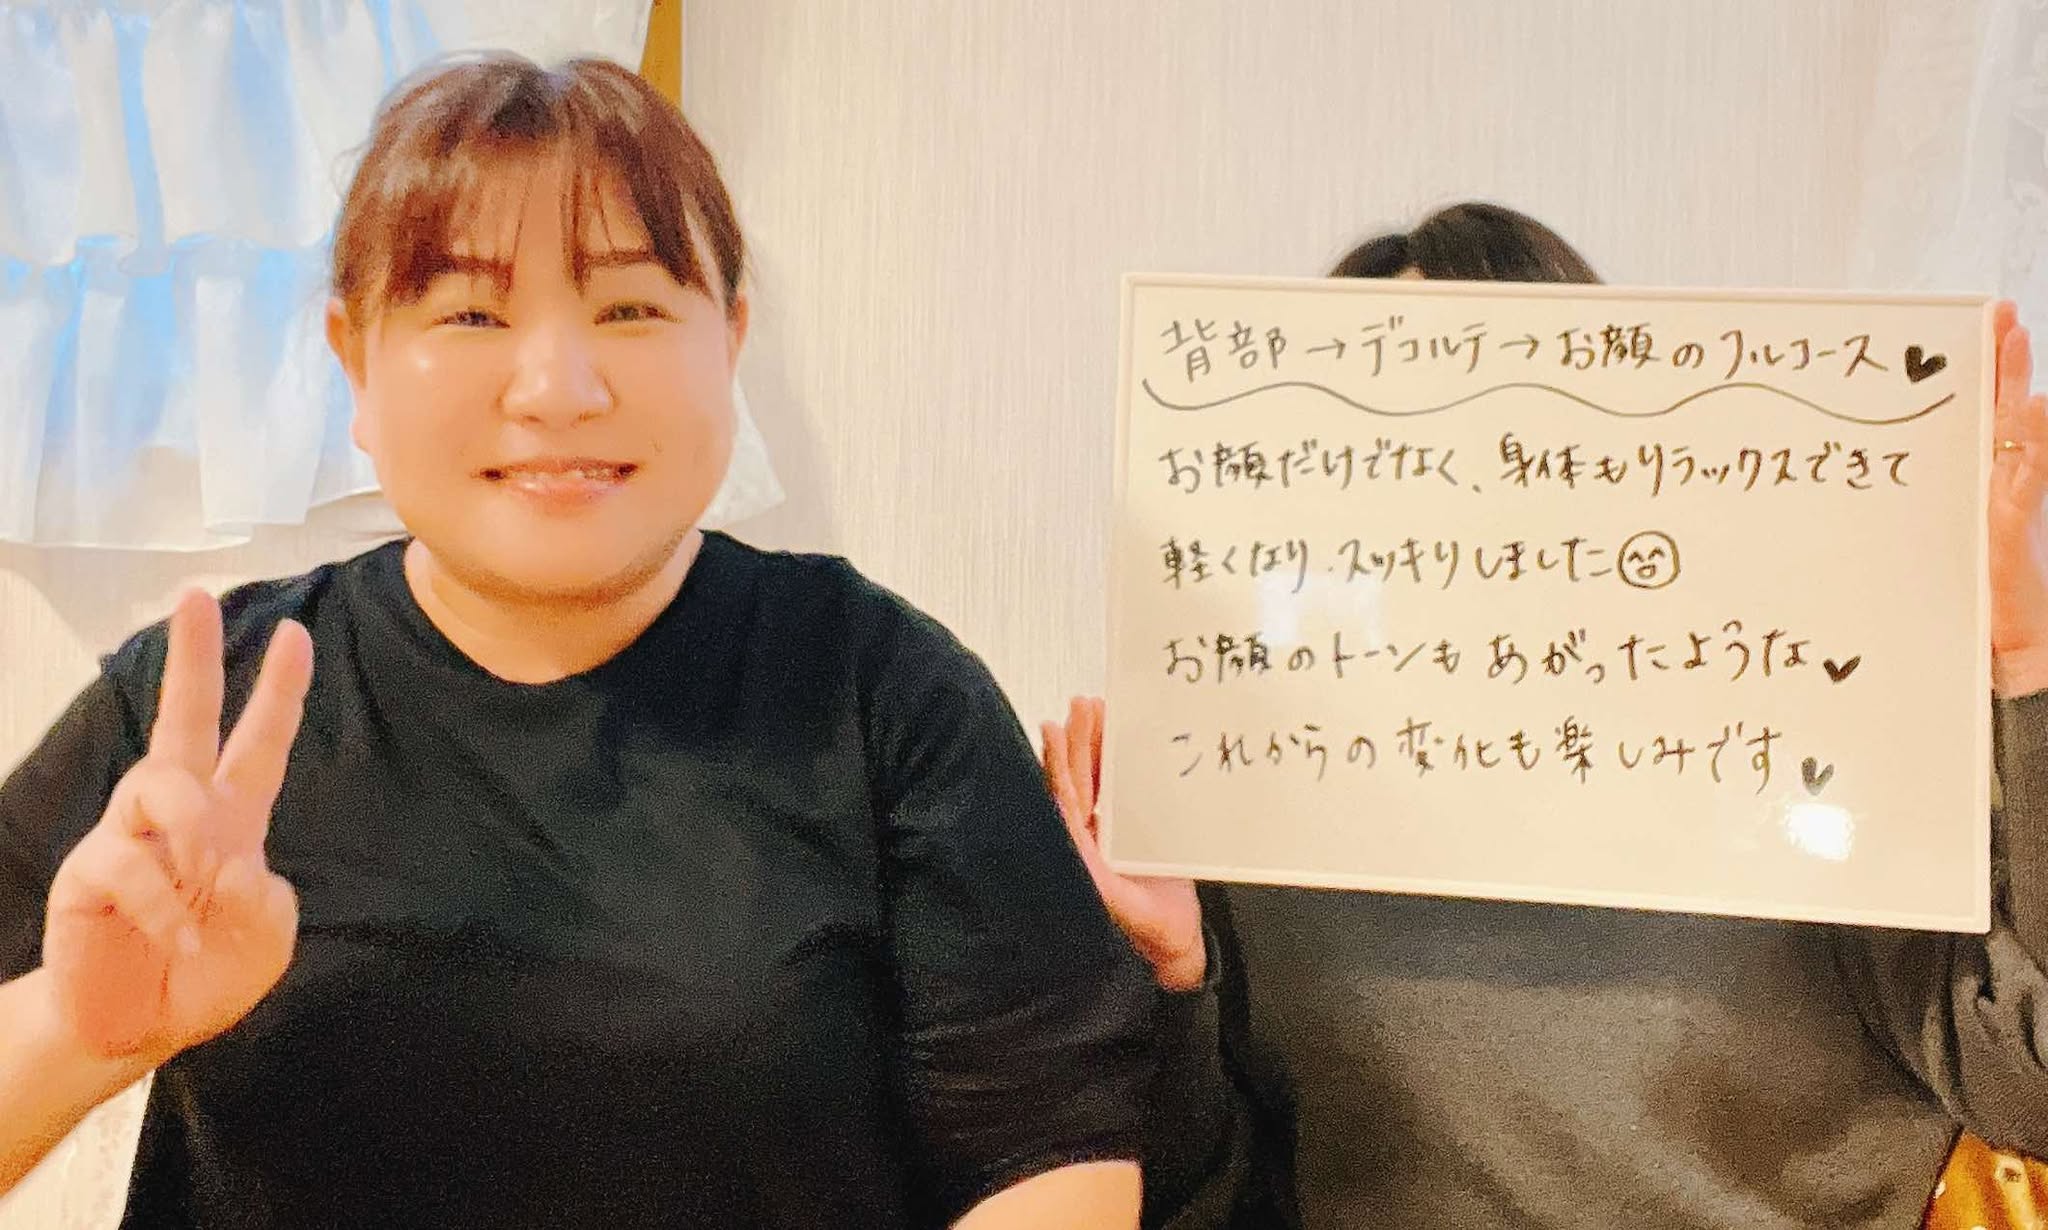 背部→デコルテ→お顔のフルコース♥
お顔だけでなく、身体もリラックスできて
軽くなり、スッキリしました
お顔のトーンもあがったような♥
これからの変化も楽しみです♥